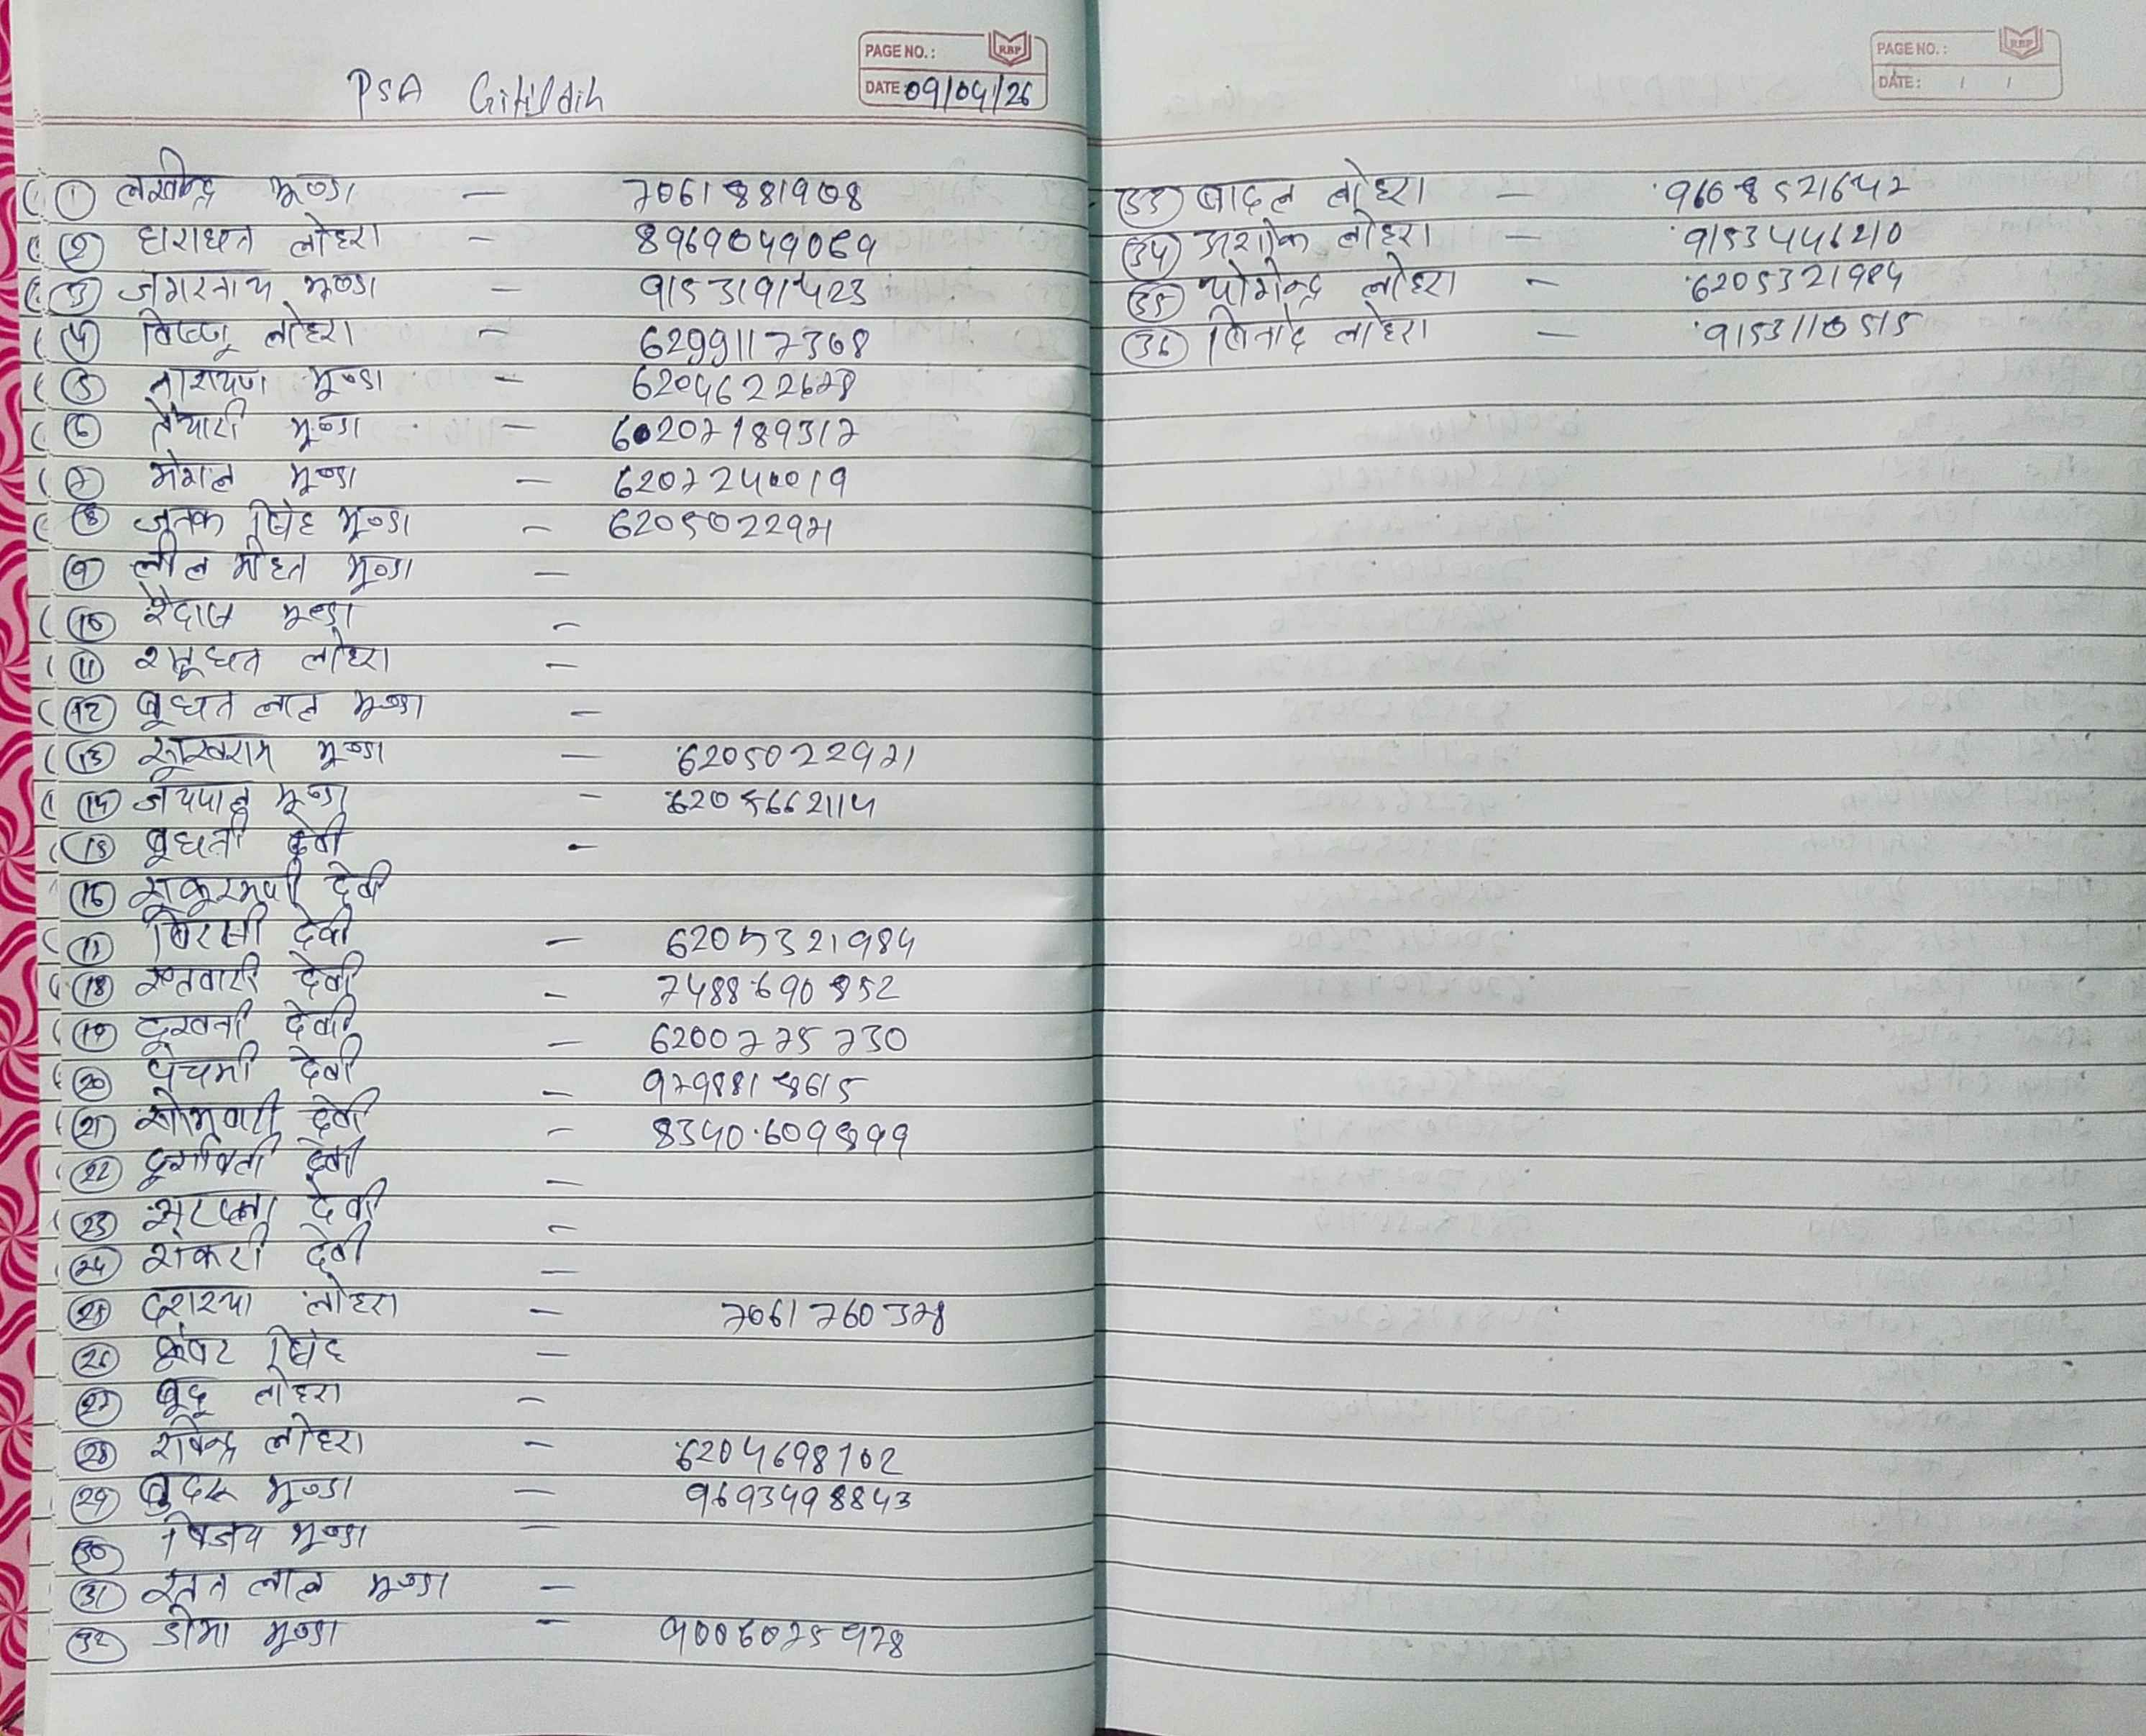 PAGE NO.: RBP
PSA Gitildih DATE 09/04/26
(1) लखीन्द्र मूण्डा — 7061881908
(2) हाराधन लोहरा — 8969049069
(3) जगरनाथ मूण्डा — 9153191423
(4) विष्णू लोहरा — 6299117368
(5) नारायण मूण्डा — 6204622678
(6) तैयारी मूण्डा — 60207189317
(7) मंगल मूण्डा — 6207240019
(8) जनक सिंह मूण्डा — 6205022971
(9) लील मोहन मूण्डा —
(10) रैदास मूण्डा —
(11) शत्रूधन लोहरा —
(12) बूधन लाल मूण्डा —
(13) सूखराम मूण्डा — 6205022971
(14) जयपाल मूण्डा — 6205662114
(15) बूधनी देवी —
(16) सूकूरमणी देवी
(17) बिरसी देवी — 6205321984
(18) सनवारी देवी — 7488690852
(19) दूखनी देवी — 6200775730
(20) पंचमी देवी — 9798818615
(21) सोमवारी देवी — 8340609899
(22) दूर्गावती देवी —
(23) देवी —
(24) शंकरी देवी —
(25) दशरथा लोहरा — 7061760378
(26) सिंह —
(27) बूदू लोहरा —
(28) रविन्द्र लोहरा — 6204698702
(29) बुदरू मूण्डा — 9693498843
(30) विजय मूण्डा —
(31) रतन लाल मूण्डा —
(32) डोमा मूण्डा — 9006075978
PAGE NO.: RBP
DATE: / /
(33) बादल लोहरा — 9608521642
(34) अशोक लोहरा — 9153446210
(35) योगेन्द्र लोहरा — 6205321984
(36) विनोद लोहरा — 9153110515